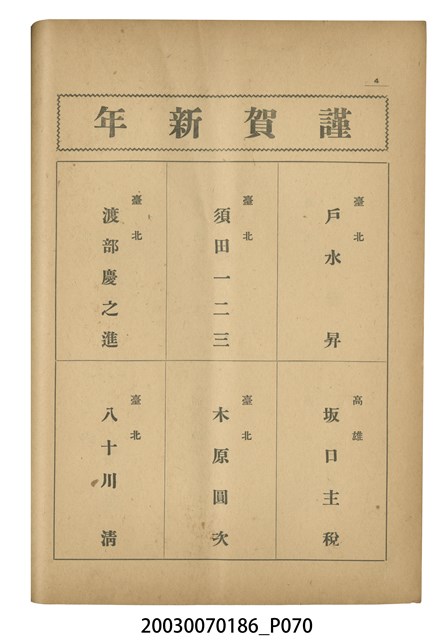 4
謹賀新年
臺北
戶水昇
臺北
須田一二三
臺北
渡部慶之進
高雄
坂口主稅
臺北
木原圓次
臺北
八十川淸
20030070186_P070